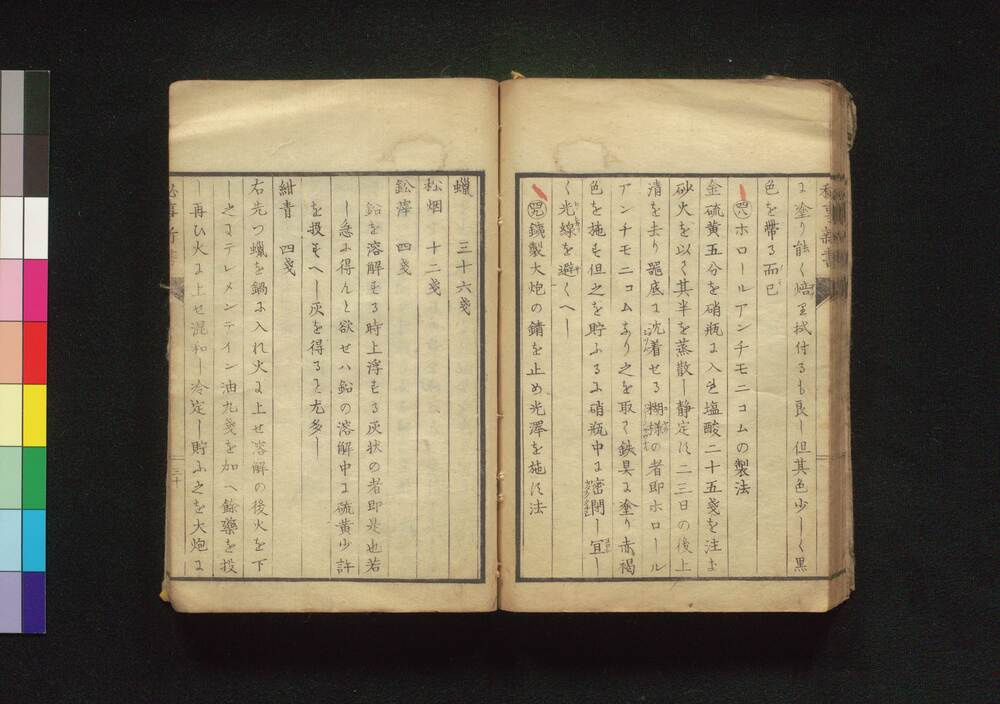 ニ塗リ能く焙リ拭付るも良し但其色少しく黒
色を帯る而已
㊽ホロールアンチモニコムの製法
金硫黄五分を硝瓶に入れ塩酸二十五戔を注き
砂火を以て其半を蒸散し静定スる二三日の後上
清を去り器底に沈着せる糊様の者即ホロール
アンチモニコムなり之を取て鉄具に塗り赤褐
色を施す但之を貯ふるに硝瓶中に密閉し宜し
く光線を避くへし
㊾鉄製大炮の錆を止め光澤を施ス法
蠟 三十六戔
松烟 十二戔
鉛滓 四戔
鉛を溶解する時上浮する灰状の者即是也若
し急に得んと欲せハ鉛の溶解中に硫黄少許
を投すへし灰を得ると尤多し
紺青 四戔
右先つ蠟を鍋に入れ火に上せ溶解の後火を下
し之にテレメンテイン油九戔を加へ餘藥を投
し再ひ火に上せ混和し冷定し貯ふ之を大炮に
三十